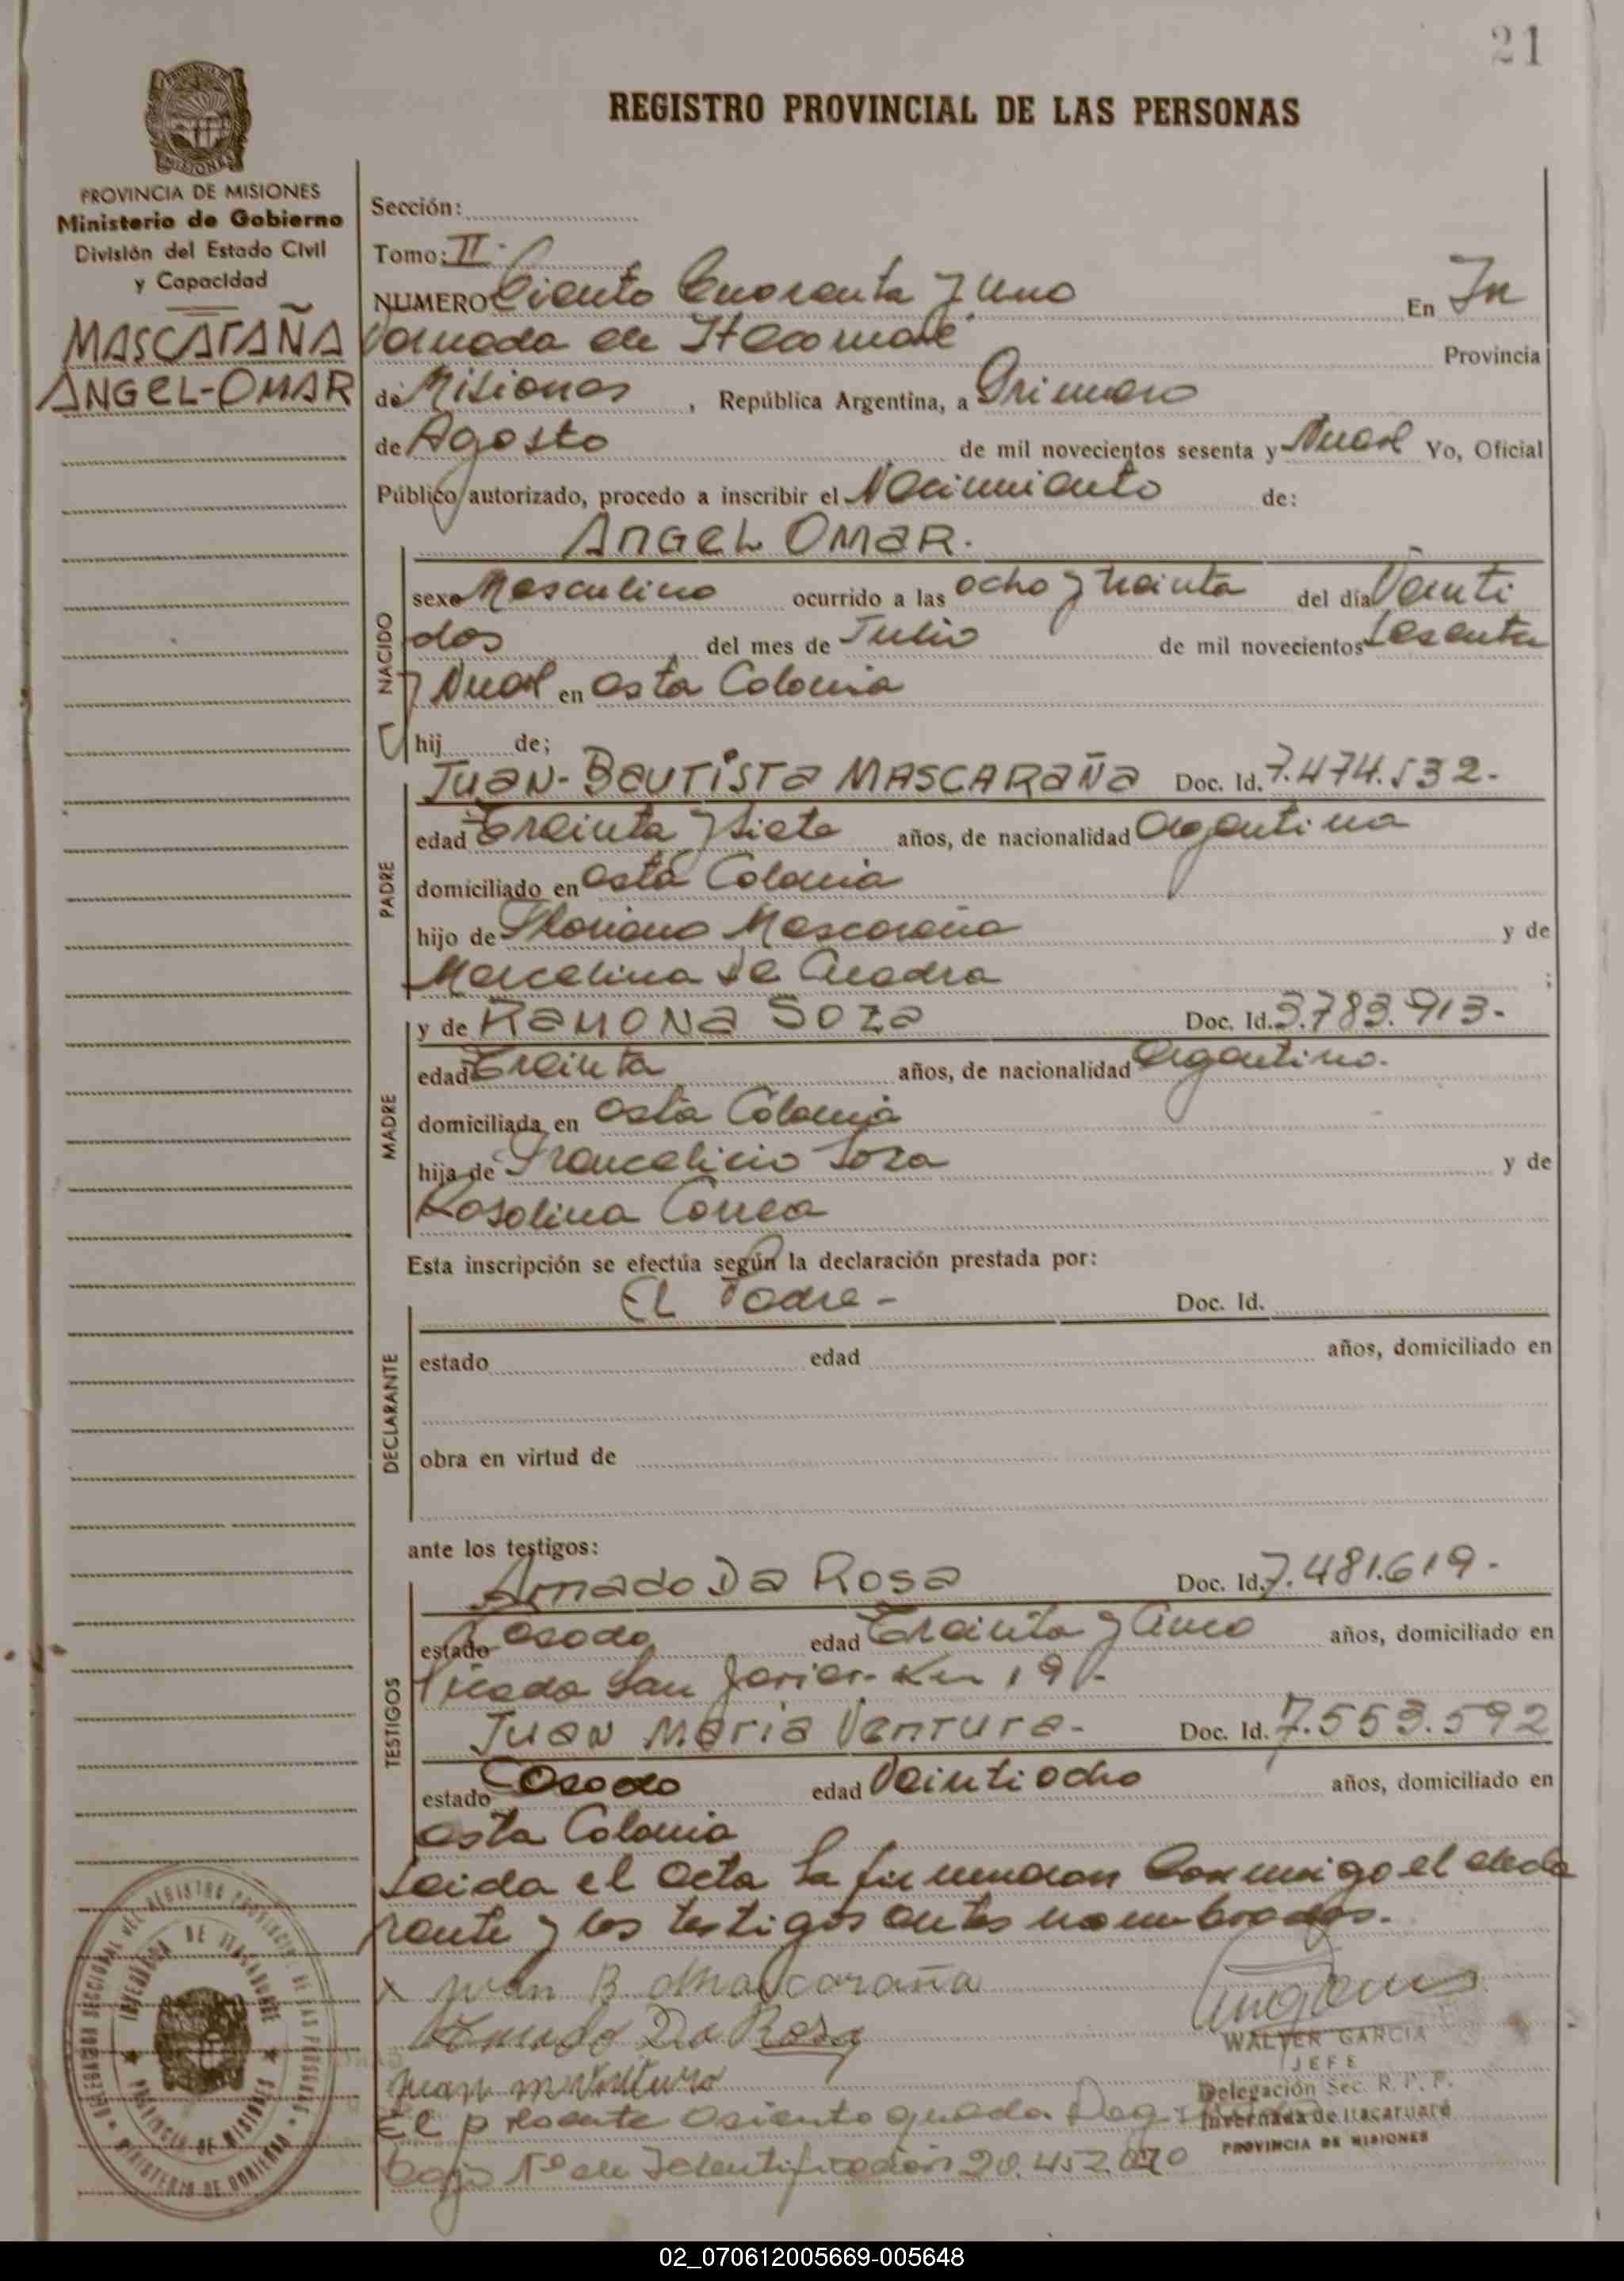 21
REGISTRO PROVINCIAL DE LAS PERSONAS
MISIONES
PROVINCIA DE MISIONES
Ministerio de Gobierno
División del Estado Civil
y Capacidad
MASCARAÑA
ANGEL-OMAR
Sección:
Tomo: II
NUMERO Ciento Cuarenta y Uno En In
vernada de Itacaruaré Provincia
de Misiones, República Argentina, a Primero
de Agosto de mil novecientos sesenta y Nueve Yo, Oficial
Público autorizado, procedo a inscribir el Nacimiento de:
ANGEL OMAR.
NACIDO
sexo Masculino ocurrido a las ocho y treinta del día Veinti
dos del mes de Julio de mil novecientos Sesenta
y Nueve en esta Colonia
hij de;
PADRE
JUAN-BAUTISTA MASCARAÑA Doc. Id. 7.474.532-
edad Treinta y Siete años, de nacionalidad Argentina
domiciliado en esta Colonia
hijo de Floriano Mascaraña y de
Marcelina De Cuadra ;
MADRE
y de RAMONA SOZA Doc. Id. 3.783.913-
edad Treinta años, de nacionalidad Argentina.
domiciliada en esta Colonia
hija de Francelicio Soza y de
Rosolina Correa
Esta inscripción se efectúa según la declaración prestada por:
DECLARANTE
El Padre - Doc. Id.
estado edad años, domiciliado en
obra en virtud de
ante los testigos:
TESTIGOS
Amado Da Rosa Doc. Id. 7.481.619-
estado Casado edad Treinta y Cinco años, domiciliado en
Picada San Javier- Km 19-
Juan Maria Ventura- Doc. Id. 7.553.592
estado Casado edad Veintiocho años, domiciliado en
esta Colonia
Leida el acta la firmaron Conmigo el decla
rante y los testigos antes nombrados.
x Juan B. Mascaraña
Amado Da Rosa
Juan M Ventura
WALTER GARCIA
JEFE
Delegación Sec. R. P. P.
Invernada de Itacaruaré
PROVINCIA DE MISIONES
El presente asiento queda Reg
bajo Nº de Identificación 20.457.070
DELEGACION SECCIONAL DEL REGISTRO PROVINCIAL DE LAS PERSONAS
MINISTERIO DE GOBIERNO
INVERNADA DE ITACARUARE
PROVINCIA DE MISIONES
02_070612005669-005648